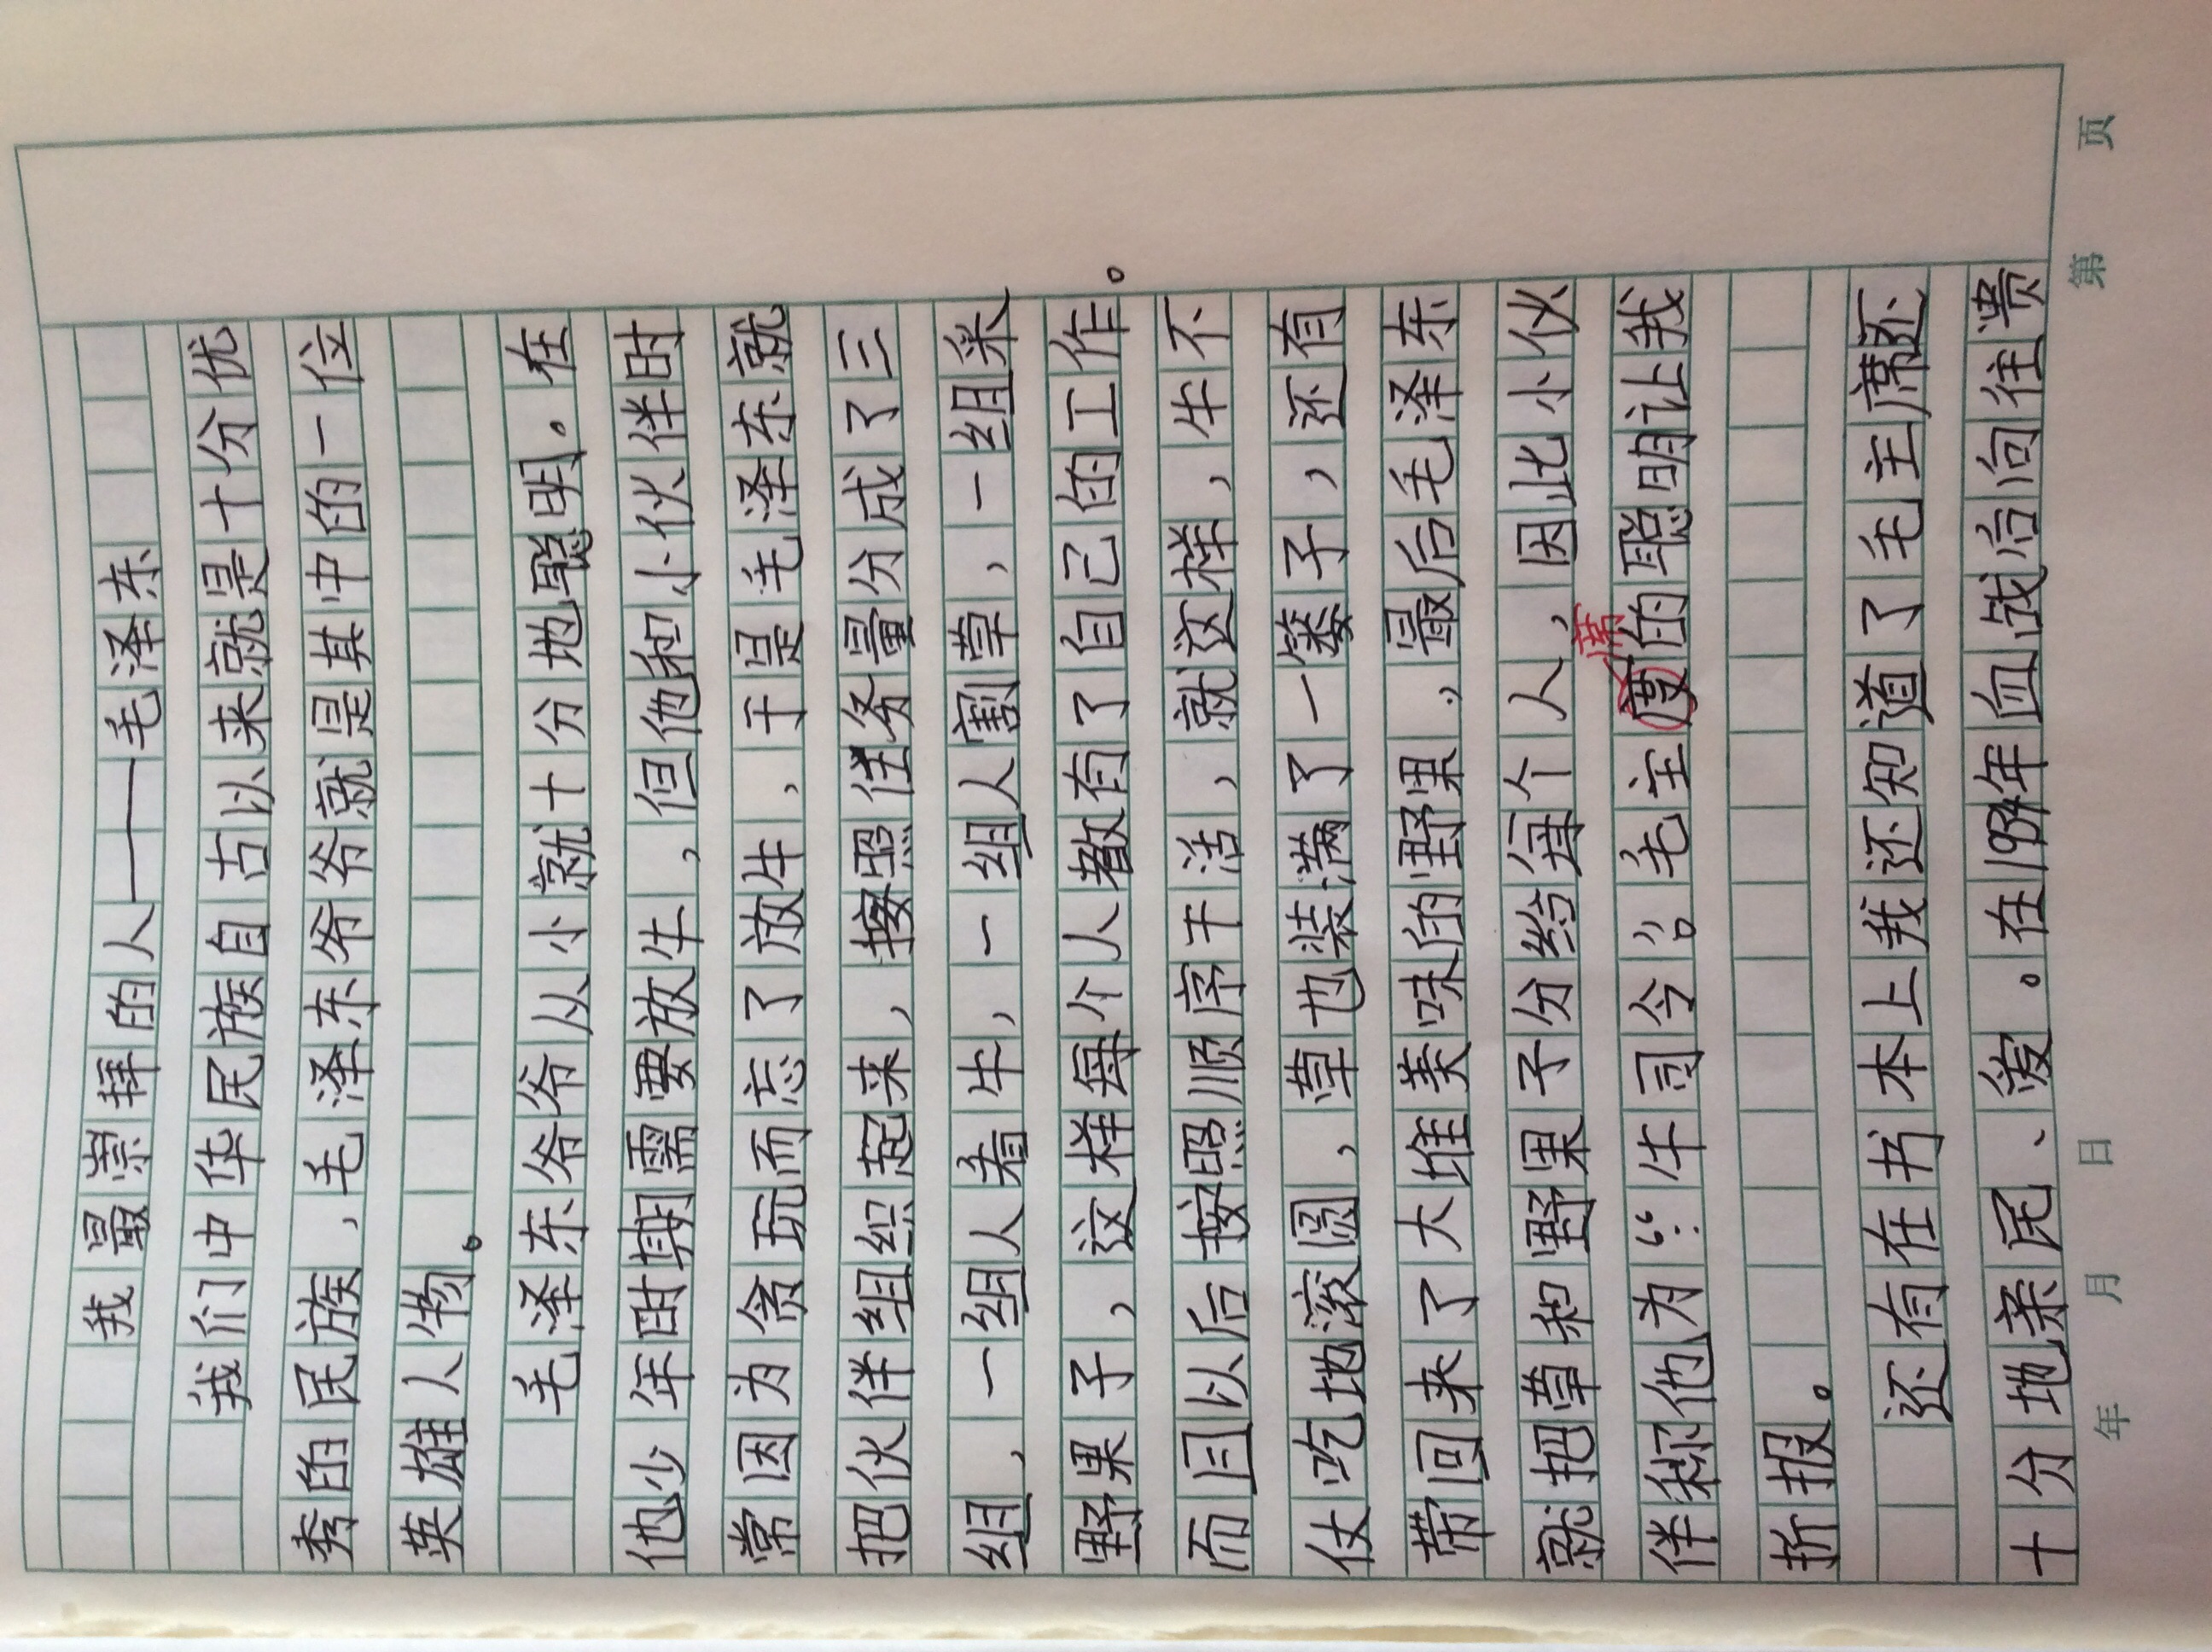 我最崇拜的人——毛泽东
我们中华民族自古以来就是十分优
秀的民族，毛泽东爷爷就是其中的一位
英雄人物。
毛泽东爷爷从小就十分地聪明。在
他少年时期需要放牛，但他和小伙伴时
常因为贪玩而忘了放牛，于是毛泽东就
把伙伴组织起来，按照任务量分成了三
组，一组人看牛，一组人割草，一组采
野果子，这样每个人都有了自己的工作。
而且以后按照顺序干活，就这样，牛不
仅吃地滚圆，草也装满了一篓子，还有
带回来了大堆美味的野果，最后毛泽东
就把草和野果子分给每个人，因此小伙
伴称他为：“牛司令”。毛主席的聪明让我
折报。
还有在书本上我还知道了毛主席还
十分地亲民、。在1934年血战后向往贵
第 页
年 月 日